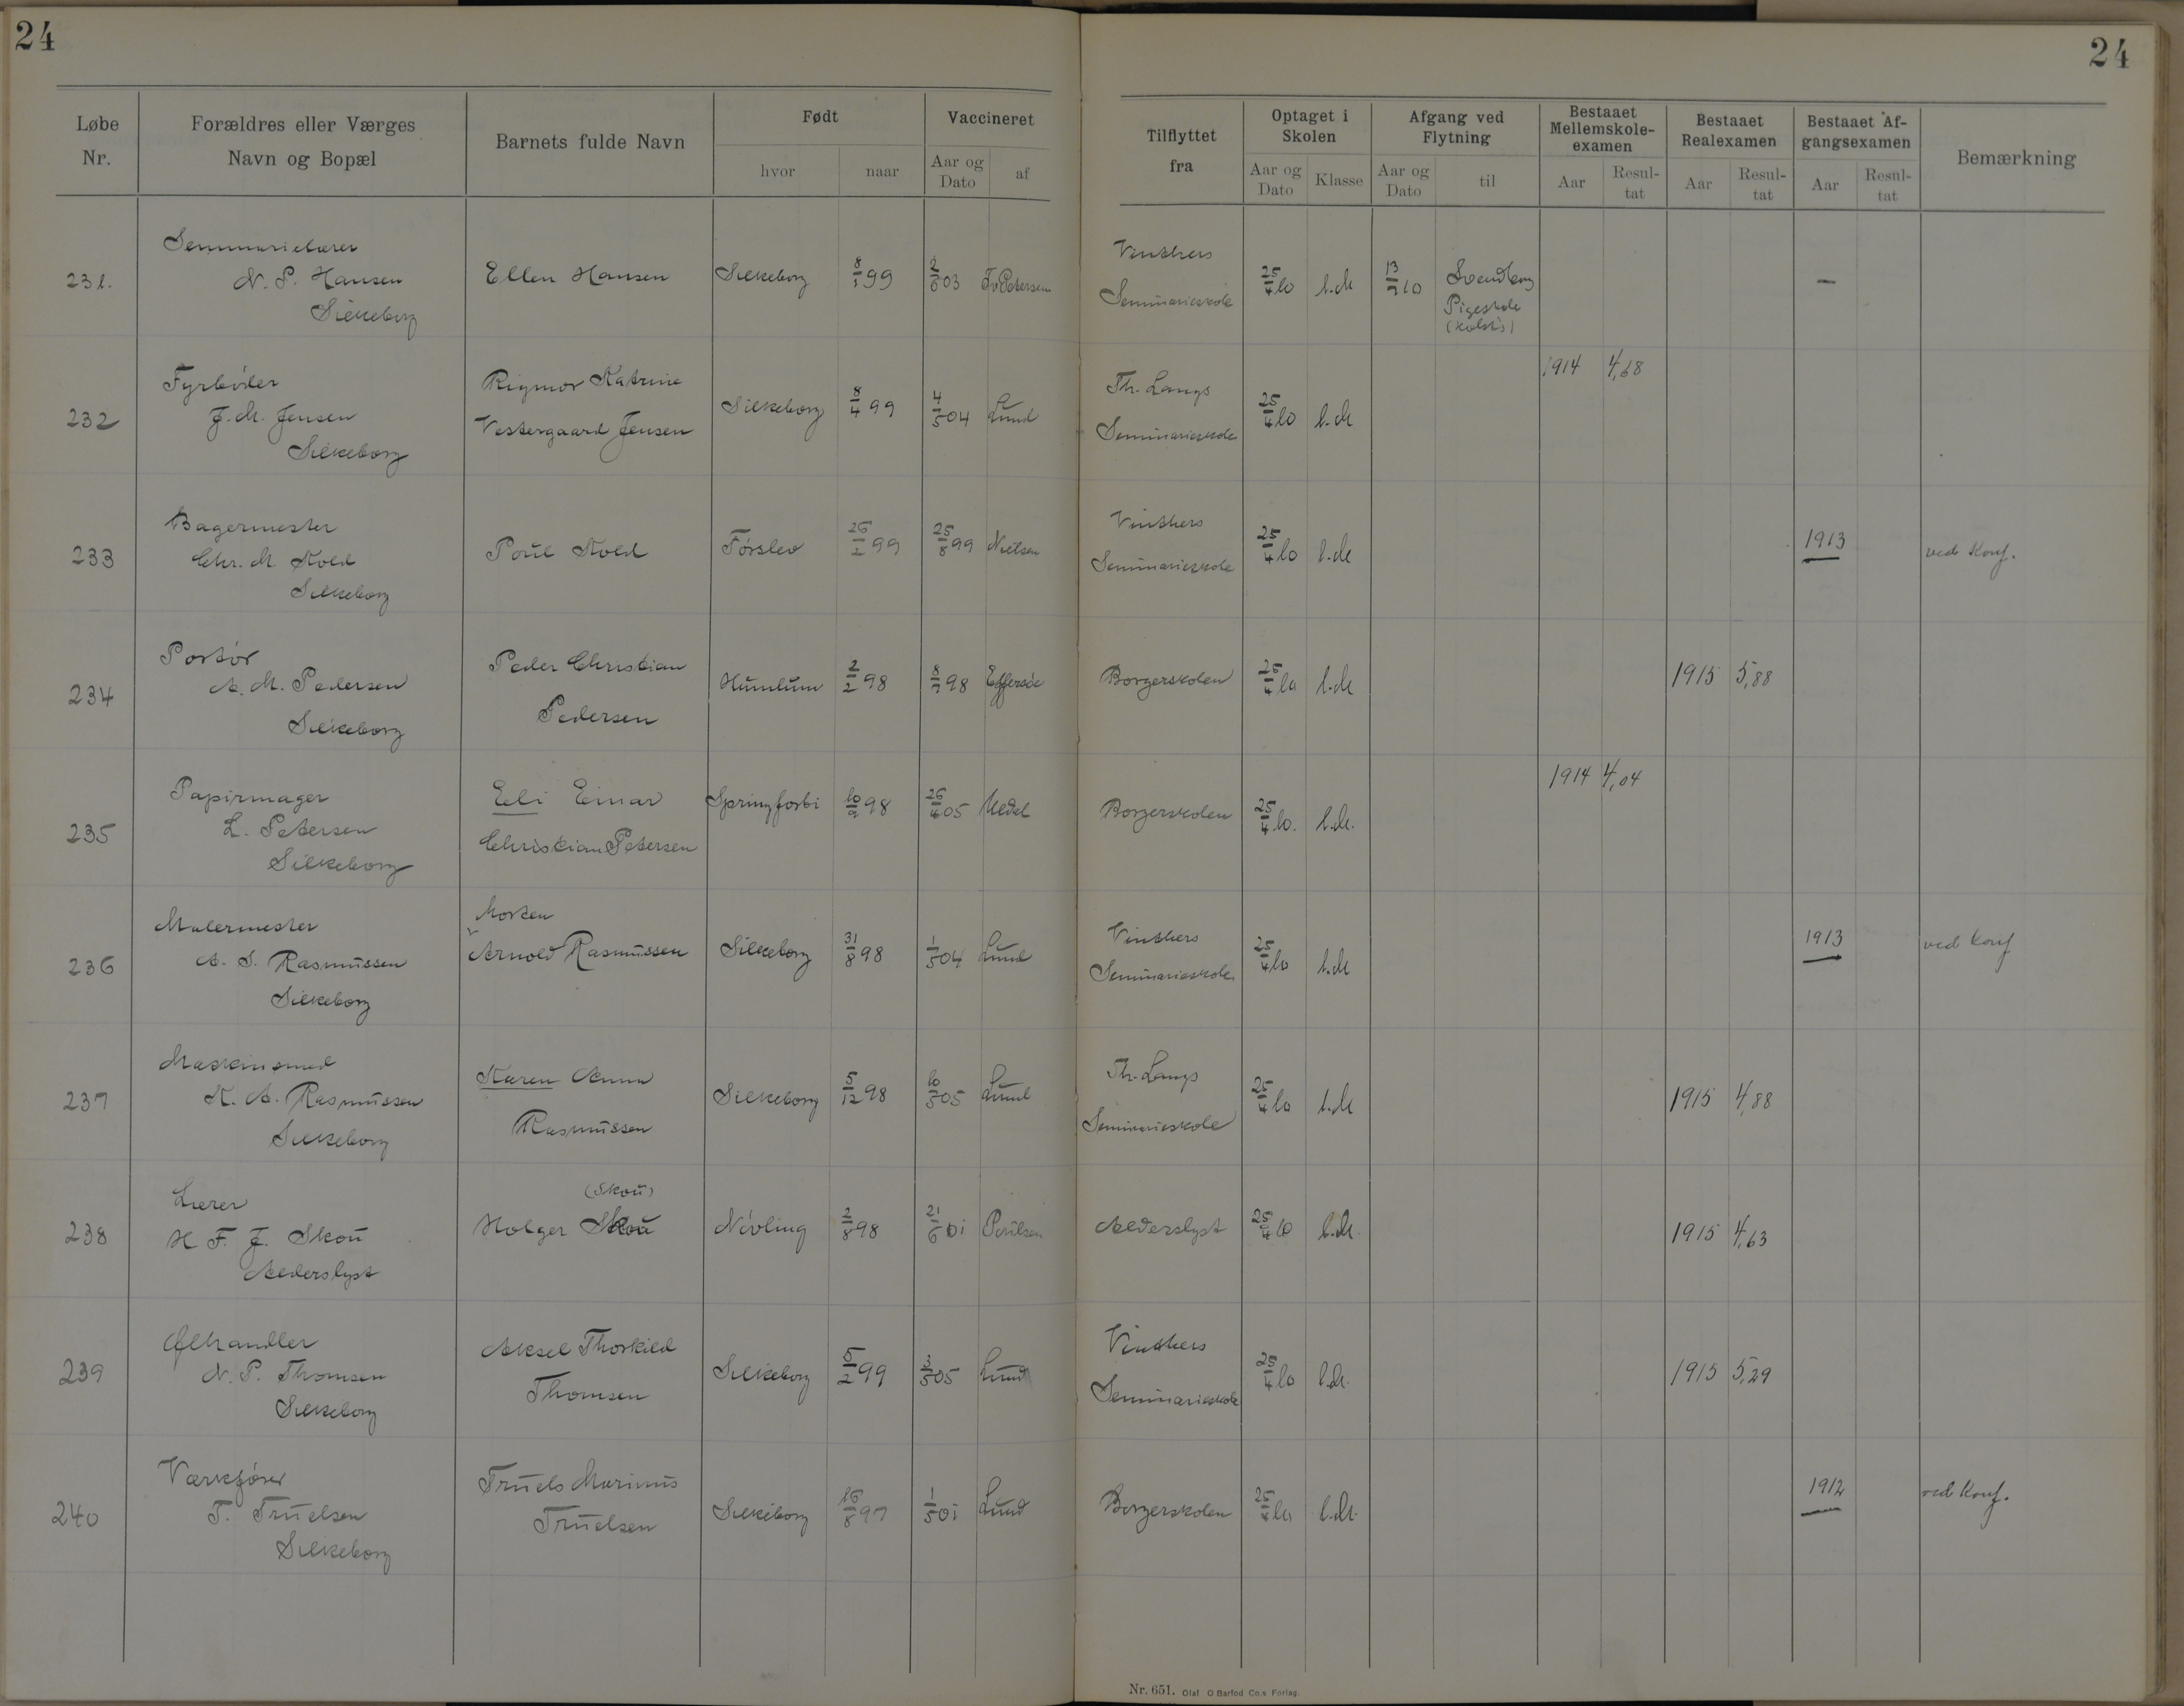 24
24
Løbe Nr.
Forældres eller Værges Navn og Bopæl
Barnets fulde Navn
Født
hvor
naar
Vaccineret
Aar og Dato
af
Tilflyttet fra
Optaget i Skolen
Aar og Dato
Klasse
Afgang ved Flytning
Aar og Dato
til
Bestaaet Mellemskole-examen
Aar
Resul-tat
Bestaaet Realexamen
Aar
Resul-tat
Bestaaet Af-gangsexamen
Aar
Resul-tat
Bemærkning
231. Seminarielærer Ellen Hansen Silkeborg 99 03 Petersen Vinthers 25/4 10 1.M 10 Svendborg —
N. P. Hansen Seminarieskole Pigeskole
Silkeborg
232 Fyrbøder Rigmor Katrine Silkeborg 8/4 99 4/5 04 Lund Th. Langs 25/4 10 1.M 1914 4,68
J. M. Jensen Vestergaard Jensen Seminarieskole
Silkeborg
233 Bagermester Poul Kold Førslev 26/2 99 25/8 99 Nielsen Vinthers 25/4 10 1.M 1913 ved Konf.
Chr. M. Kold Seminarieskole
Silkeborg
234 Portør Peder Christian Humlum 2/2 98 8/7 98 Borgerskolen 25/4 10 1.M 1915 5,88
A. M. Pedersen Pedersen
Silkeborg
235 Papirmager Eli Einar Springforbi 10/9 98 26/4 05 Borgerskolen 25/4 10. 1.M. 1914 4,04
L. Petersen Christian Petersen
Silkeborg
236 Malermester Morten Silkeborg 31/8 98 1/5 04 Lund Vinthers 25/4 10 1.M 1913 ved Konf
A. S. Rasmussen Arnold Rasmussen Seminarieskole
Silkeborg
237 Maskinsmed Karen Anna Silkeborg 5/12 98 10/5 05 Lund Th. Langs 25/4 10 1.M 1915 4,88
K. A. Rasmussen Rasmussen Seminarieskole
Silkeborg
238 Lærer (Skou)
H F. J. Skou Holger Skou Nøvling 2/8 98 21/6 01 Poulsen Alderslyst 25/4 10 1.M. 1915 4,63
Alderslyst
239 Ølhandler Aksel Thorkild Silkeborg 5/2 99 3/5 05 Lund Vinthers 25/4 10 1.M. 1915 5,29
N. P. Thomsen Thomsen Seminarieskole
Silkeborg
240 Værkfører Truels Marinus Silkeborg 16/8 97 1/5 01 Lund Borgerskolen 25/4 10 1.M. 1912 ved Konf.
T. Truelsen Truelsen
Silkeborg
Nr. 651. Olaf O Barfod Co.s Forlag.